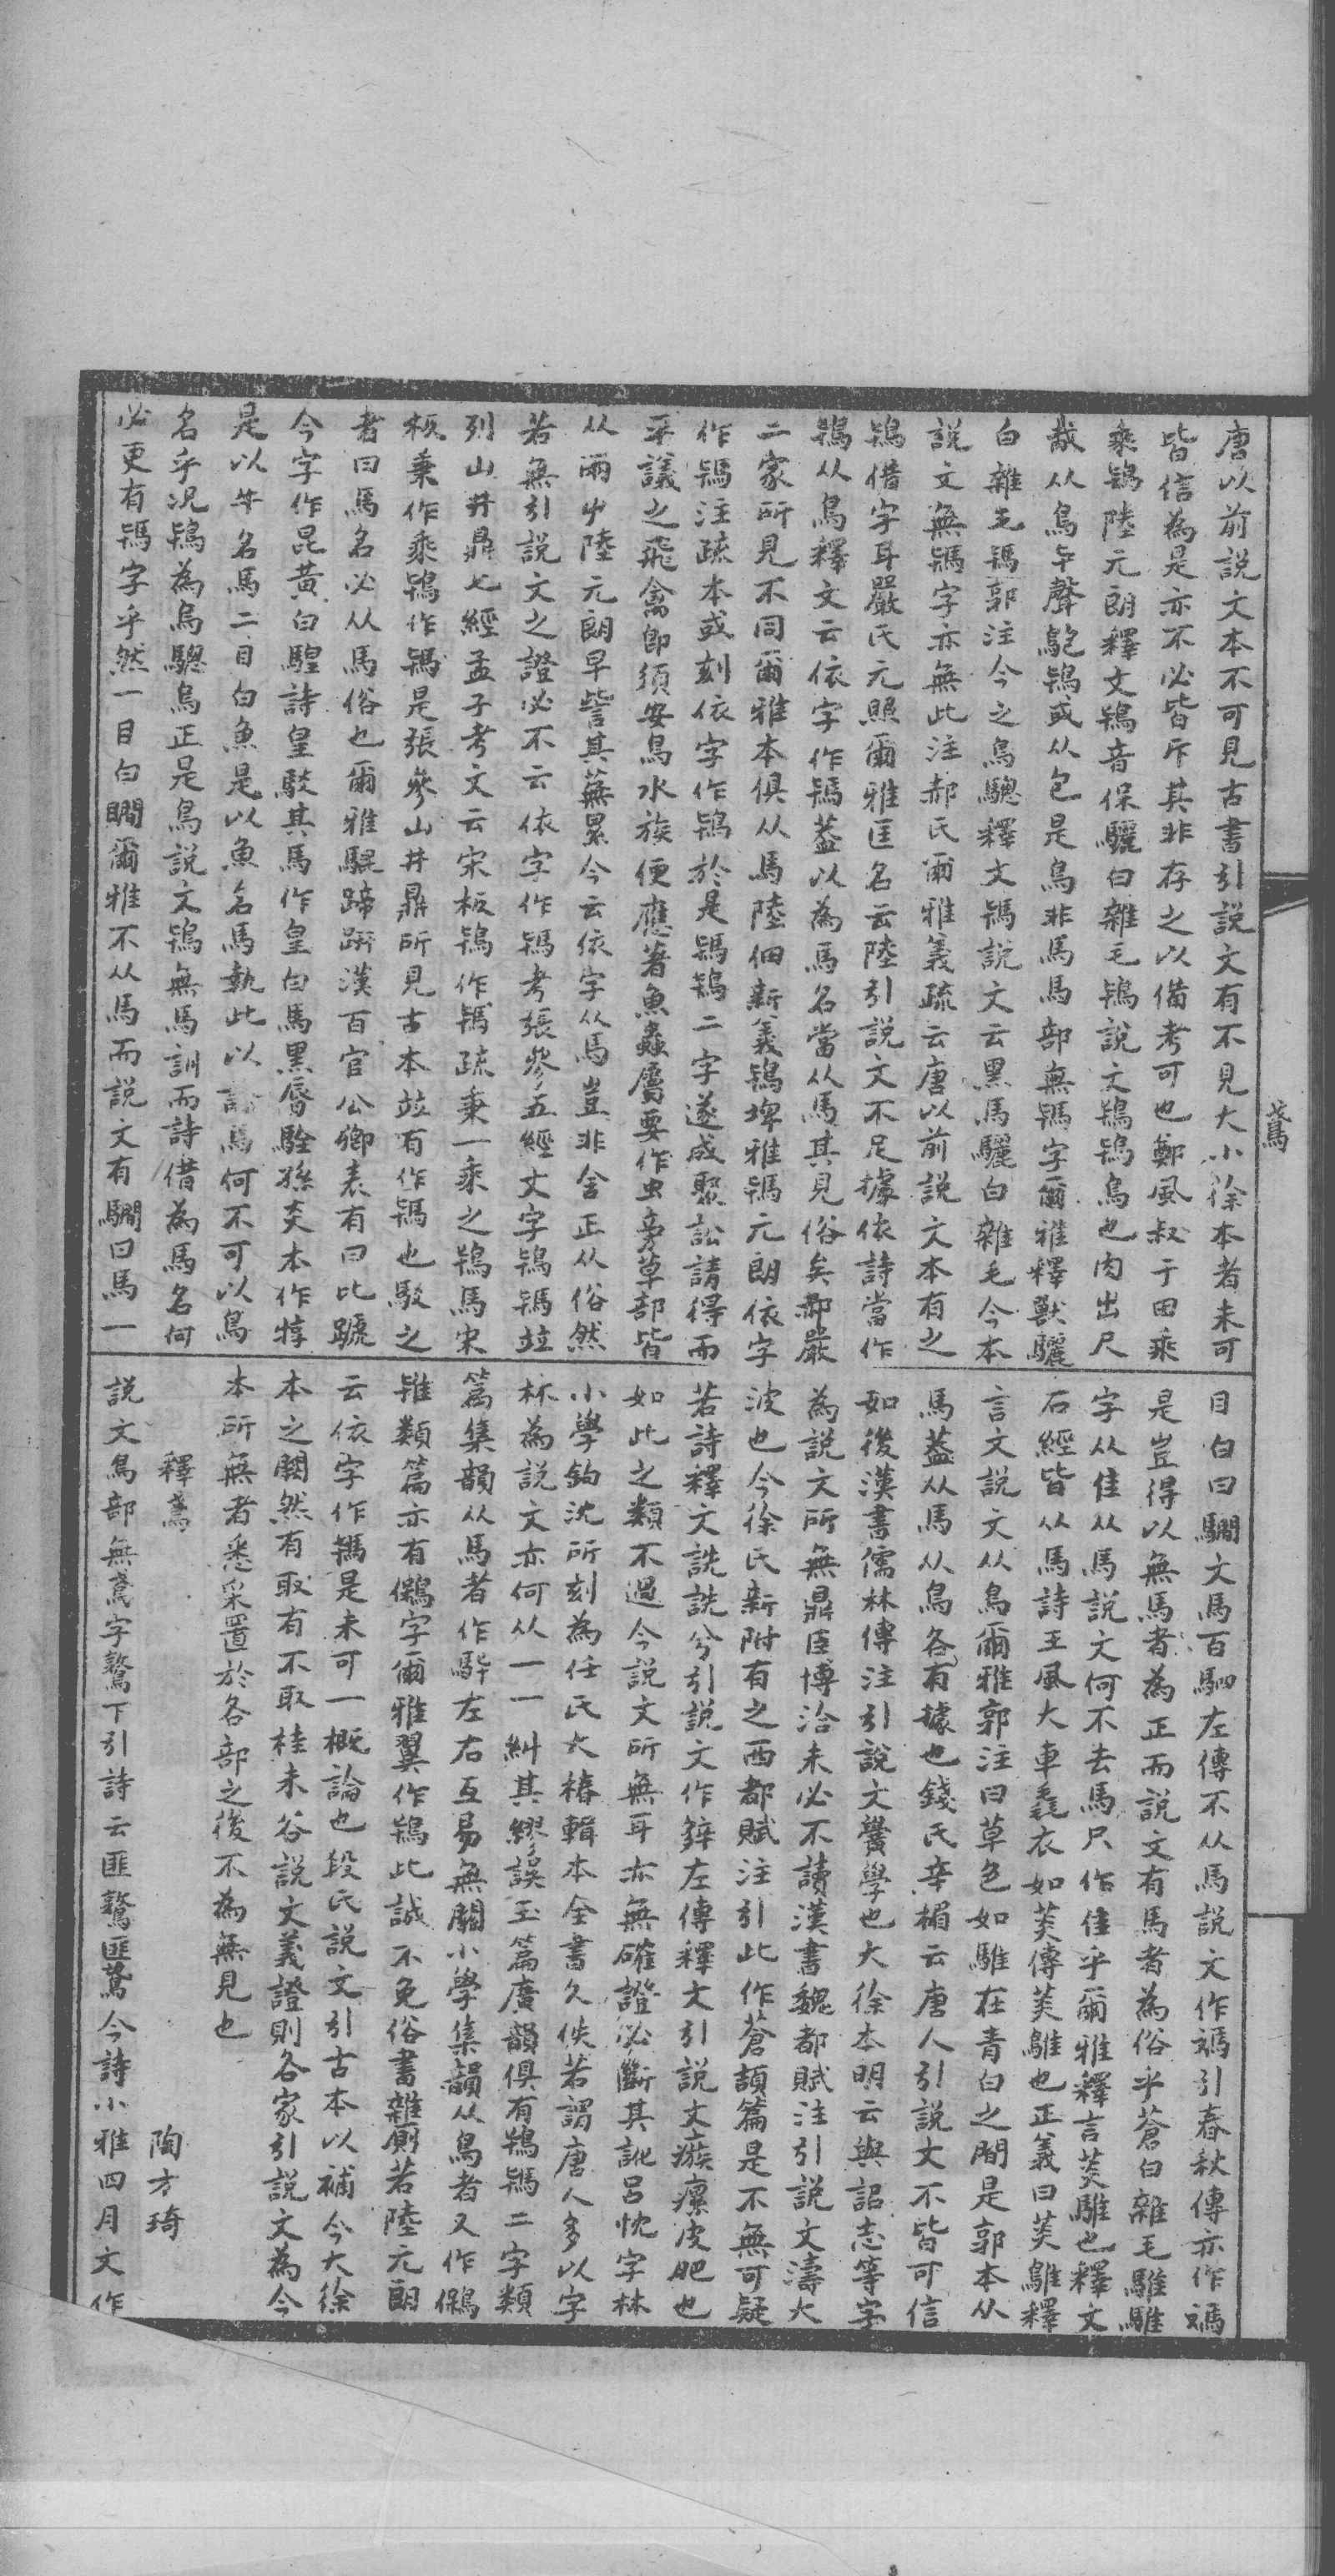 鳶
唐以前説文本不可見古書引説文有不見大小徐本者未可
皆信為是亦不必皆斥其非存之以備考可也鄭風叔于田乘
乘鴇陸元朗釋文鴇音保驪白雜毛鴇説文鴇鴇鳥也肉出尺
胾从鳥𠤏聲鴇或从包是鳥非馬馬部無䮀字爾雅釋獸驪
白雜毛䮀郭注今之烏驄釋文䮀説文云黑馬驪白雜毛今本
説文無䮀字亦無此注郝氏爾雅義疏云唐以前説文本有之
鴇借字耳嚴氏元照爾雅匡名云陸引説文不足據依詩當作
鴇从鳥釋文云依字作䮀蓋以為馬名當从馬其見俗矣郝嚴
二家所見不同爾雅本俱从馬陸佃新義鴇埤雅䮀元朗依字
作䮀注疏本或刻依字作鴇於是䮀鴇二字遂成聚訟請得而
平議之飛禽即須安鳥水族便應著魚蟲屬要作虫旁草部皆
从兩屮陸元朗早訾其蕪累今云依字从馬豈非舍正从俗然
若無引説文之證必不云依字作䮀考張參五經文字鴇䮀竝
列山井鼎七經孟子考文云宋板鴇作䮀疏乘一乘之鴇馬宋
板乘作乘鴇作䮀是張參山井鼎所見古本竝有作䮀也駁之
者曰馬名必从馬俗也爾雅騉蹄趼漢百官公卿表有曰比號
今字作昆黃白騜詩皇駁其馬作皇白馬黑脣駩孫炎本作犉
是以牛名馬二目白魚是以魚名馬執此以論馬何不可以鳥
名乎況鴇為烏驄烏正是鳥説文鴇無馬訓而詩借為馬名何
必更有䮀字乎然一目白瞷爾雅不从馬而説文有騆曰馬一
目白曰騆文馬百駟左傳不从馬説文作䮀引春秋傳亦作䮀
是豈得以無馬者為正而説文有馬者為俗乎蒼白雜毛騅騅
字从隹从馬説文何不去馬只作隹乎爾雅釋言菼騅也釋文
石經皆从馬詩王風大車毳衣如菼傳菼鵻也正義曰菼鵻釋
言文説文从鳥爾雅郭注曰草色如騅在青白之間是郭本从
馬蓋从馬从鳥各有據也錢氏辛楣云唐人引説文不皆可信
如後漢書儒林傳注引説文黌學也大徐本明云與詔志等字
為説文所無鼎臣博洽未必不讀漢書魏都賦注引説文濤大
波也今徐氏新附有之西都賦注引此作蒼頡篇是不無可疑
若詩釋文詵詵兮引説文作𨐔左傳釋文引説文瘯瘰皮肥也
如此之類不過今説文所無耳亦無確證必斷其訛呂忱字林
小學鉤沈所刻為任氏大椿輯本全書久佚若謂唐人多以字
林為説文亦何从一一糾其繆誤玉篇廣韻俱有鴇䮀二字類
篇集韻从馬者作駂左右互易無關小學集韻从鳥者又作鴇
雖類篇亦有鴇字爾雅翼作鴇此誠不免俗書雜厠若陸元朗
云依字作䮀是未可一概論也段氏説文引古本以補今大徐
本之闕然有取有不取桂未谷説文義證則各家引説文為今
本所無者悉采置於各部之後不為無見也
釋鳶　陶方琦
説文鳥部無鳶字鷻下引詩云匪鷻匪鳶今詩小雅四月文作